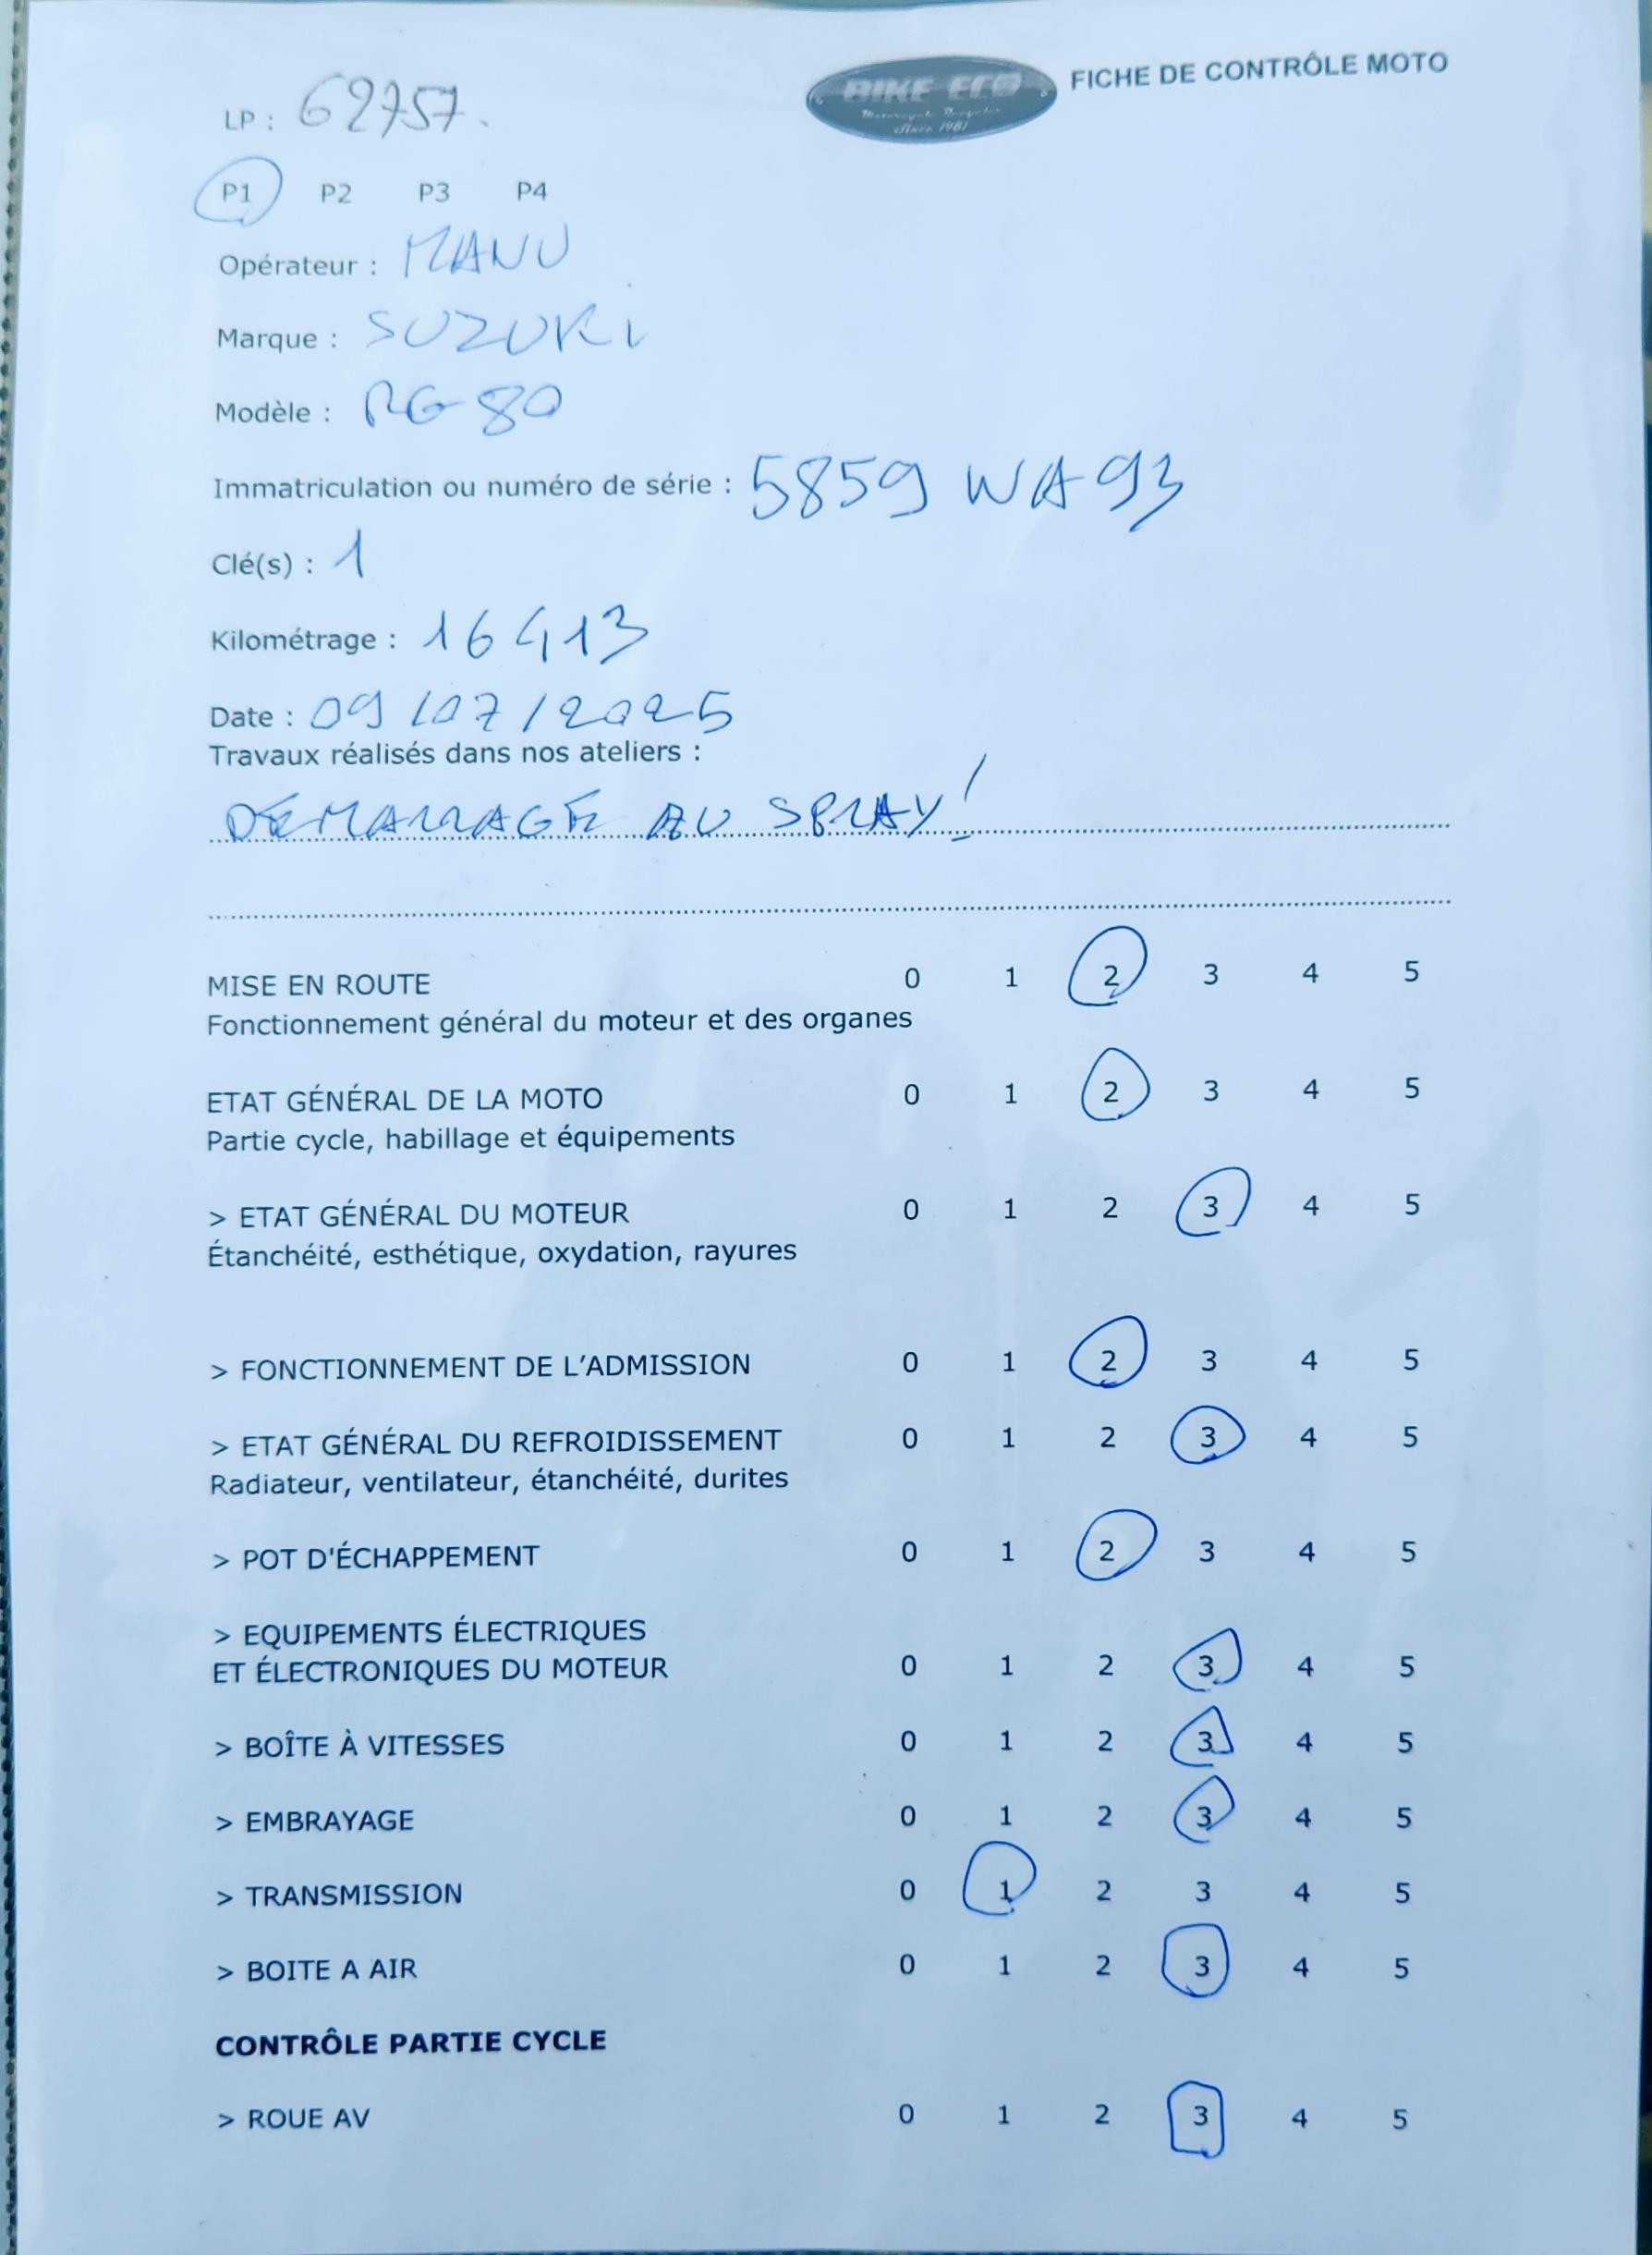 BIKE ECO
Motorcycle Recycler
Since 1981
FICHE DE CONTRÔLE MOTO
LP : 62757.
P1 P2 P3 P4
Opérateur : MANU
Marque : SUZUKI
Modèle : RG 80
Immatriculation ou numéro de série : 5859 WA 93
Clé(s) : 1
Kilométrage : 16413
Date : 09/07/2025
Travaux réalisés dans nos ateliers :
DÉMARRAGE AU SPRAY !
MISE EN ROUTE 0 1 2 3 4 5
Fonctionnement général du moteur et des organes
ETAT GÉNÉRAL DE LA MOTO 0 1 2 3 4 5
Partie cycle, habillage et équipements
> ETAT GÉNÉRAL DU MOTEUR 0 1 2 3 4 5
Étanchéité, esthétique, oxydation, rayures
> FONCTIONNEMENT DE L'ADMISSION 0 1 2 3 4 5
> ETAT GÉNÉRAL DU REFROIDISSEMENT 0 1 2 3 4 5
Radiateur, ventilateur, étanchéité, durites
> POT D'ÉCHAPPEMENT 0 1 2 3 4 5
> EQUIPEMENTS ÉLECTRIQUES
ET ÉLECTRONIQUES DU MOTEUR 0 1 2 3 4 5
> BOÎTE À VITESSES 0 1 2 3 4 5
> EMBRAYAGE 0 1 2 3 4 5
> TRANSMISSION 0 1 2 3 4 5
> BOITE A AIR 0 1 2 3 4 5
CONTRÔLE PARTIE CYCLE
> ROUE AV 0 1 2 3 4 5